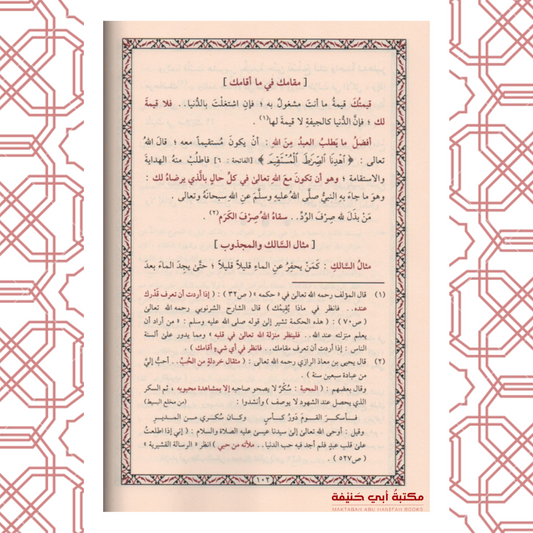 [ مقامك في ما أقامك ]
قيمتُكَ قيمةُ ما أنتَ مشغولٌ به ؛ فإنِ اشتغلتَ بالدُّنيا.. فلا قيمةَ
لك ؛ فإنَّ الدنيا كالجيفةِ لا قيمةَ لها(١) .
أفضلُ ما يَطلبُ العبدُ مِنَ اللهِ : أنْ يكونَ مُستقيماً معه ؛ قالَ اللهُ
تعالى : ﴿ اهْدِنَا الصِّرَاطَ الْمُسْتَقِيمَ ﴾ [الفاتحة : ٦] فاطلُبْ منهُ الهدايةَ
والاستقامة ؛ وهو أن تكونَ معَ اللهِ تعالىٰ في كلِّ حالٍ بالَّذي يرضاهُ لك ؛
وهوَ ما جاءَ بهِ النبيُّ صلَّى اللهُ عليهِ وسلَّمَ عنِ اللهِ سبحانَهُ وتعالىٰ .
مَنْ بذَلَ للهِ صِرْفَ الوُدِّ.. سقاهُ اللهُ صِرْفَ الكَرَمِ(٢) .
[ مثال السَّالك والمجذوب ]
مثالُ السَّالكِ : كمَنْ يحفِرُ عنِ الماءِ قليلاً قليلاً ؛ حتَّىٰ يجِدَ الماءَ بعدَ
(١) قال المؤلف رحمه الله تعالىٰ في « حكمه » ( ص٣٢ ) : ( إذا أردت أن تعرف قَدْرك
عنده.. فانظر في ماذا يُقيمُك ) قال الشارح الشرنوبي رحمه الله تعالىٰ
( ص٧٠ ) : ( هذه الحكمة تشير إلىٰ قوله صلى الله عليه وسلم : « من أراد أن
يعلم منزلته عند الله.. فلينظر منزلة الله تعالىٰ في قلبه » ومما يدور علىٰ ألسنة
الناس : إذا أردت أن تعرف مقامك.. فانظر في أي شيء أقامك ) .
(٢) قال يحيى بن معاذ الرازي رحمه الله تعالى : ( مثقال خردلةٍ من الحُبِّ.. أحبُّ إليَّ
من عبادة سبعين سنة ) .
وقال بعضهم : ( المحبة : سُكْرٌ لا يصحو صاحبه إلا بمشاهدة محبوبه ، ثم السكر
الذي يحصل عند الشهود لا يوصف ) وأنشدوا : (من مخلع البسيط)
فأسكرَ القومَ دَورُ كأسٍ وكان سُكْري من المديرِ
وقيل : أوحى الله تعالىٰ إلىٰ سيدنا عيسىٰ عليه الصلاة والسلام : ( إني إذا اطلعتُ
علىٰ قلب عبدٍ فلم أجد فيه حب الدنيا.. ملأته من حبي ) انظر « الرسالة القشيرية »
( ص٥٢٧ ) .
١٠٢
مكتبة أبي حنيفة
MAKTABAH ABU HANIFAH BOOKS